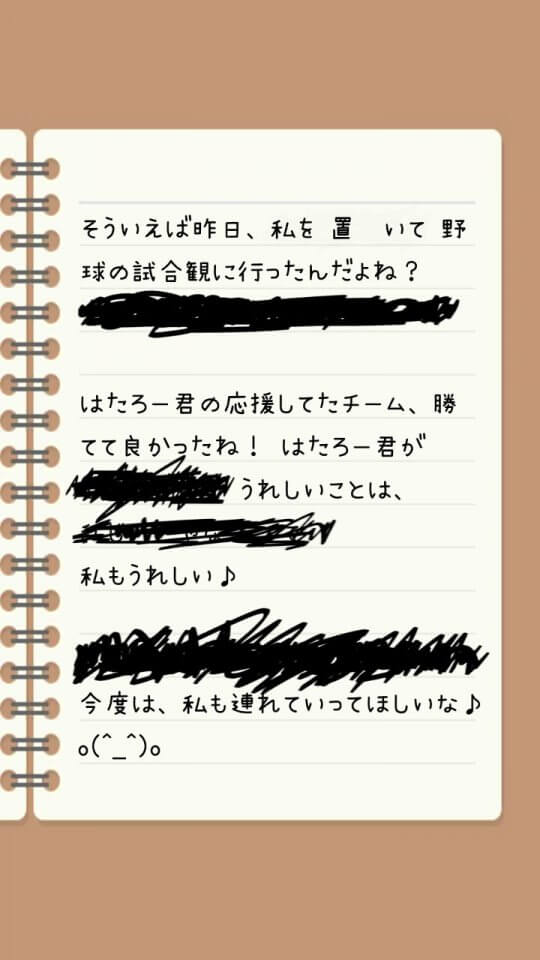 そういえば昨日、私を 置 いて 野
球の試合観に行ったんだよね？
はたろー君の応援してたチーム、勝
てて良かったね！ はたろー君が
うれしいことは、
私もうれしい♪
今度は、私も連れていってほしいな♪
o(^_^)o